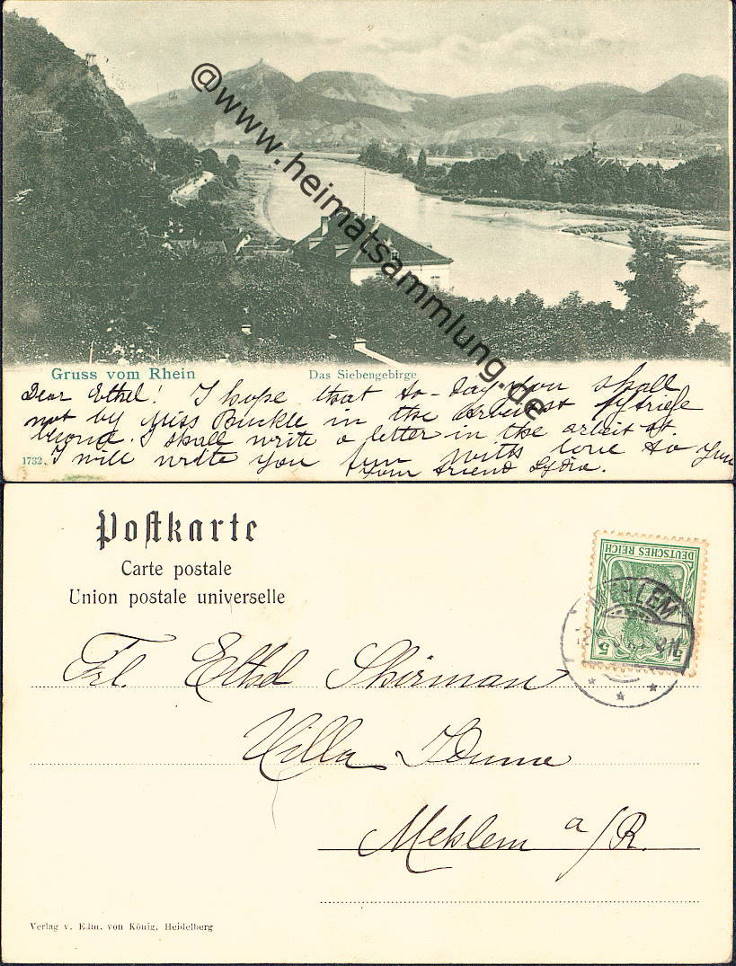 @www.heimatsammlung.de
Gruss vom Rhein
Das Siebengebirge
Dear Ethel! I hope that to-day you shall
not by Miss Buckle in the
beyond. I shall write a letter in the arbeit st.
1732. I will write you with love to you
from friend Lydia.
Postkarte
Carte postale
Union postale universelle
DEUTSCHES REICH
5 5
MEHLEM
Frl. Ethel Shirman
Villa
Mehlem a/R.
Verlag v. Edm. von König, Heidelberg